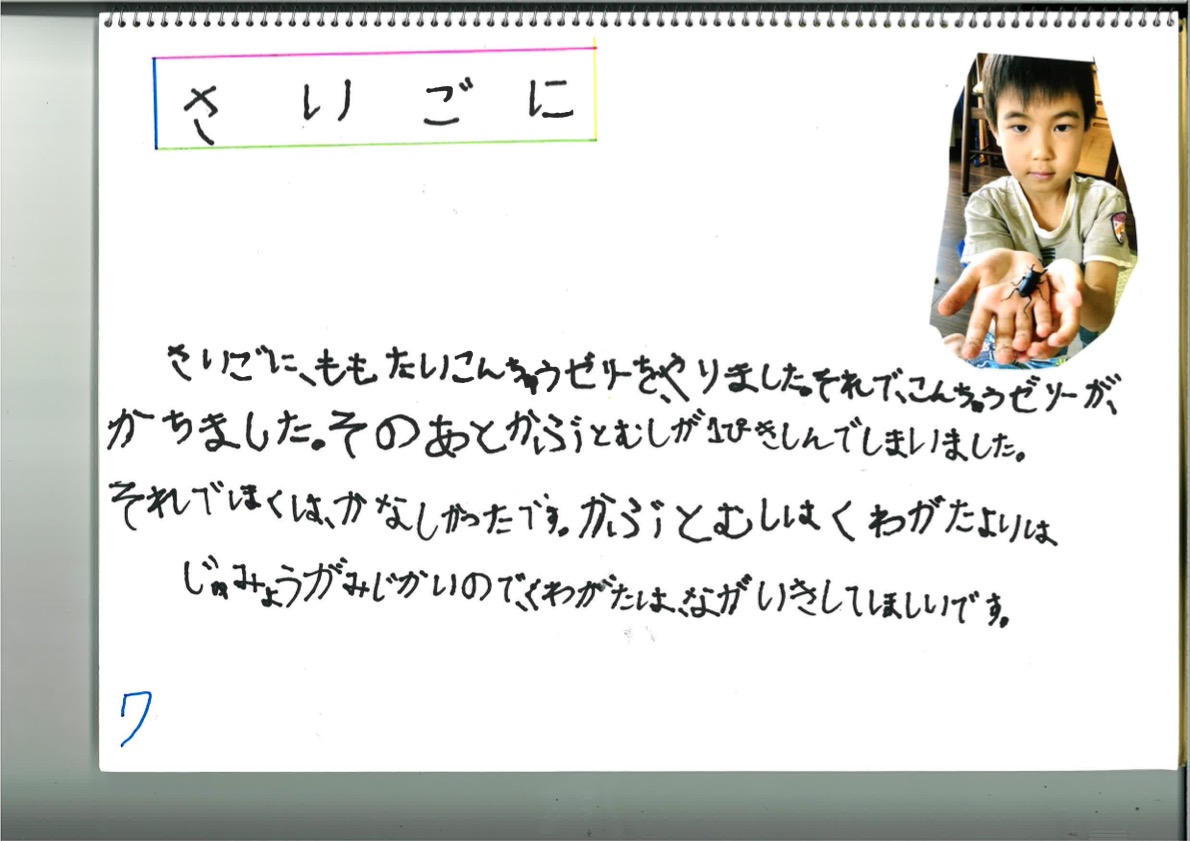 さいごに
さいごに、ももたいこんちゅうゼリーを、やりました。それで、こんちゅうゼリーが、
かちました。そのあとかぶとむしが1ぴきしんでしまいました。
それでぼくは、かなしかったです。かぶとむしはくわがたよりは
じゅみょうがみじかいので、くわがたは、ながいきしてほしいです。
7